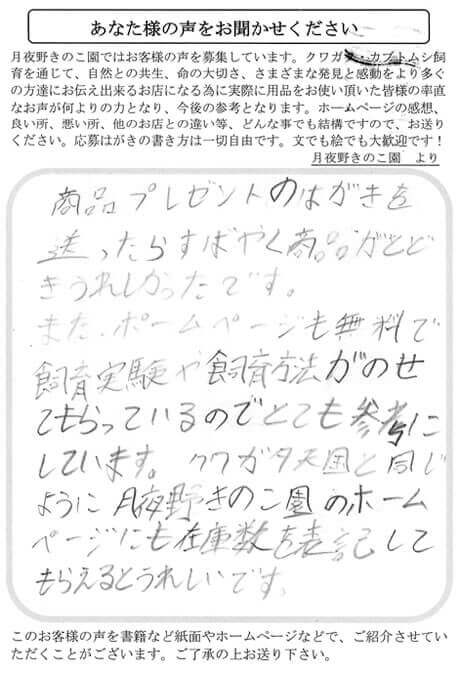 あなた様の声をお聞かせください
月夜野きのこ園ではお客様の声を募集しています。クワガタ・カブトムシ飼
育を通じて、自然との共生、命の大切さ、さまざまな発見と感動をより多ぐ
の方達にお伝え出来るお店になる為に実際に用品をお使い頂いた皆様の率直
なお声が何よりの力となり、今後の参考となります。ホームページの感想、
良い所、悪い所、他のお店との違い等、どんな事でも結構ですので、お送り
ください。応募はがきの書き方は一切自由です。文でも絵でも大歓迎です！
月夜野きのこ園　より
商品プレゼントのはがきを
送ったらすばやく商品がとど
きうれしかったです。
また、ホームページも無料で
飼育実験や飼育方法がのせ
てもらっているのでとても参考に
しています。クワガタ天国と同じ
ように月夜野きのこ園のホーム
ページにも在庫数を表記して
もらえるとうれしいです。
このお客様の声を書籍など紙面やホームページなどで、ご紹介させてい
ただくことがございます。ご了承の上お送り下さい。